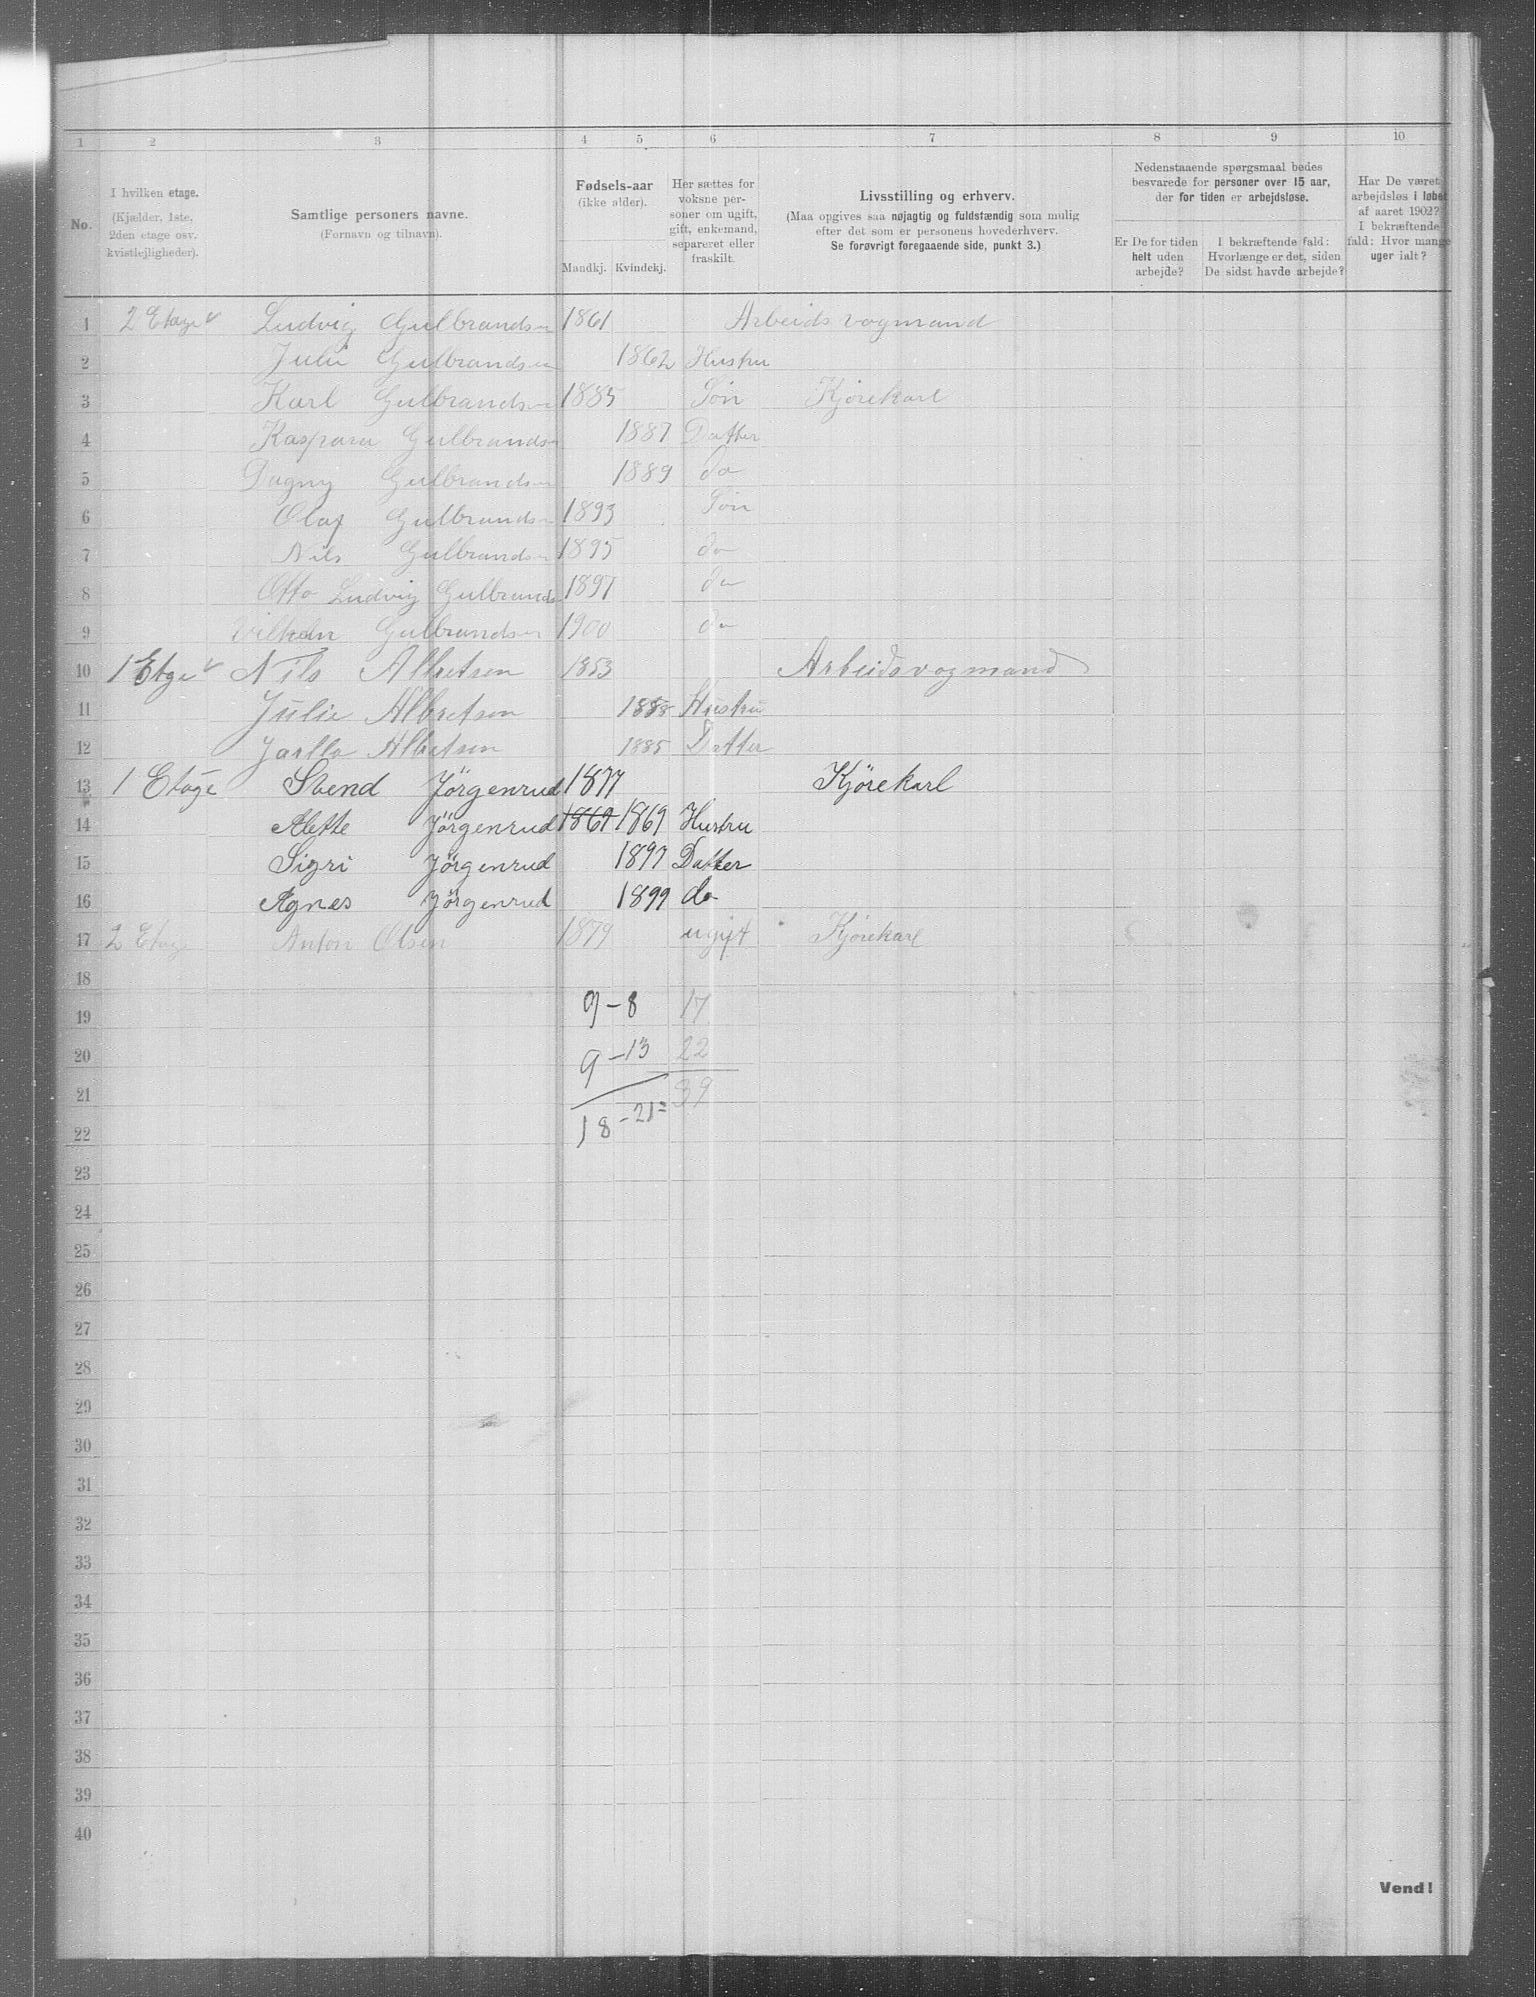 1 2 3 4 5 6 7 8 9 10
No.
I hvilken etage.
(Kjælder, 1ste,
2den etage osv.
kvistlejligheder).
Samtlige personers navne.
(Fornavn og tilnavn).
Fødsels-aar
(ikke alder).
Mandkj. Kvindekj.
Her sættes for
voksne per-
soner om ugift,
gift, enkemand,
separeret eller
fraskilt.
Livsstilling og erhverv.
(Maa opgives saa nøjagtig og fuldstændig som mulig
efter det som er personens hovederhverv.
Se forøvrigt foregaaende side, punkt 3.)
Nedenstaaende spørgsmaal bedes
besvarede for personer over 15 aar,
der for tiden er arbejdsløse.
Er De for tiden
helt uden
arbejde?
I bekræftende fald:
Hvorlænge er det, siden
De sidst havde arbejde?
Har De været
arbejdsløs i løbet
af aaret 1902?
I bekræftende
fald: Hvor mange
uger ialt?
1 2 Etage Ludvig Gulbrandsen 1861 Arbeids vogmand
2 Julie Gulbrandsen 1862 Hustru
3 Karl Gulbrandsen 1885 Søn Kjørekarl
4 Kaspara Gulbrandsen 1887 Datter
5 Dagny Gulbrandsen 1889 do
6 Olaf Gulbrandsen 1893 Søn
7 Nils Gulbrandsen 1895 do
8 Otto Ludvig Gulbrands 1897 do
9 Gulbrandsen 1900 do
10 1 Etge Nils Albretsen 1853 Arbeidsvogmand
11 Julie Albretsen Hustru
12 Albretsen 1885 Datter
13 1 Etage Svend Jörgenrud 1877 Kjörekarl
14 Alette Jörgenrud 1869 1869 Hustru
15 Sigri Jörgenrud 1897 Datter
16 Agnes Jörgenrud 1899 do
17 2 Etage Anton Olsen 1879 ugift Kjörekarl
18
19 9-8 17
20 9-13 22
21 39
22 18-21=
23
24
25
26
27
28
29
30
31
32
33
34
35
36
37
38
39
40
Vend!